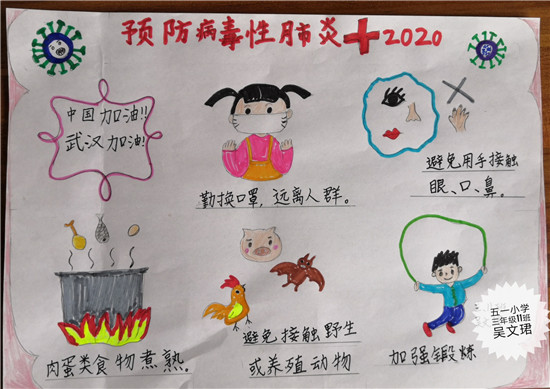 预防病毒性肺炎 2020
中国加油!!
武汉加油!
勤换口罩，远离人群。
避免用手接触
眼、口、鼻。
肉蛋类食物煮熟。
避免接触野生
或养殖动物
加强锻炼
五一小学
三年级11班
吴文珺